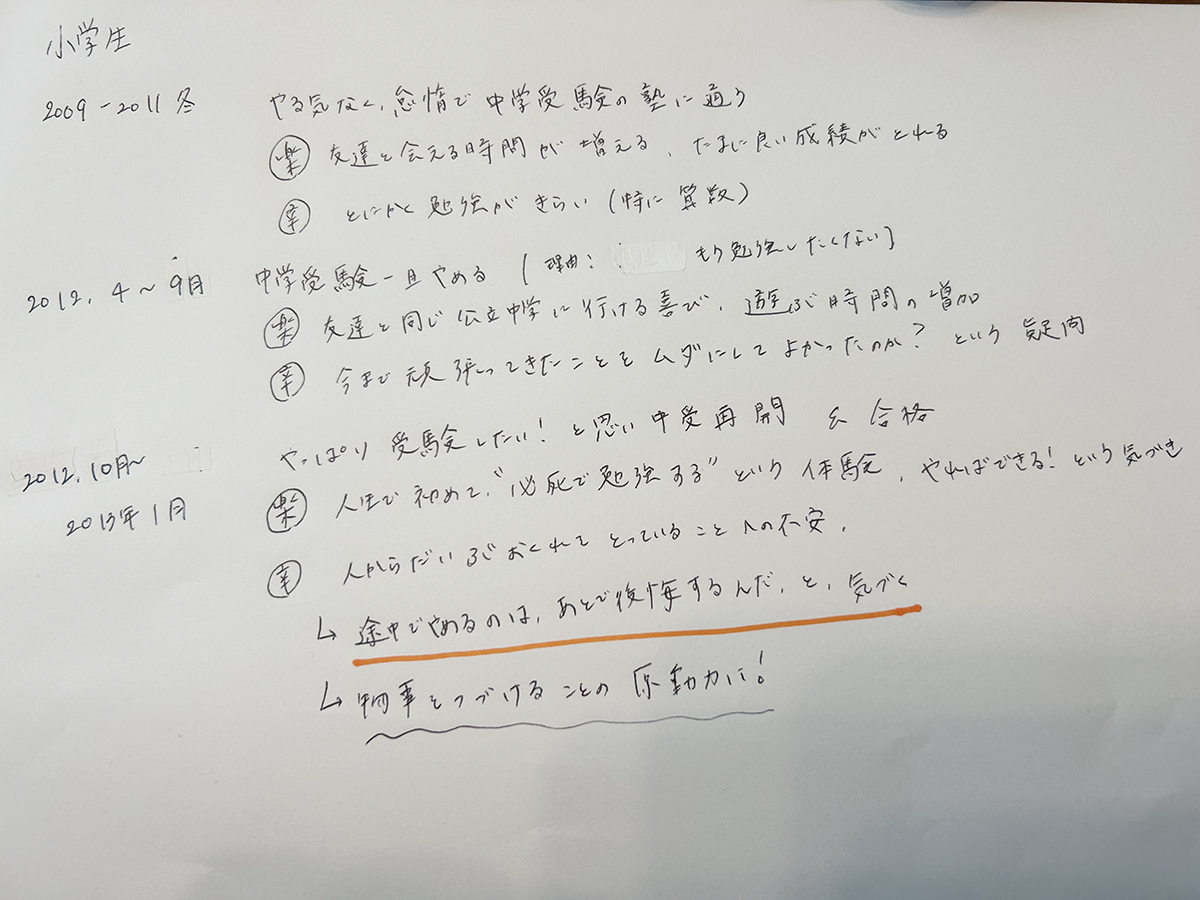 小学生
2009-2011冬 やる気なく、怠惰で中学受験の塾に通う
楽 友達と会える時間が増える、たまに良い成績がとれる
辛 とにかく勉強がきらい(特に算数)
2012.4~9月 中学受験一旦やめる [理由: もう勉強したくない]
楽 友達と同じ公立中学に行ける喜び、遊ぶ時間の増加
辛 今まで頑張ってきたことをムダにしてよかったのか?という疑問
2012.10月~ やっぱり受験したい!と思い中受再開 & 合格
2013年1月 楽 人生で初めて、"必死で勉強する"という体験、やればできる!という気づき
辛 人からだいぶおくれてとっていることへの不安、
↳ 途中でやめるのは、あとで後悔するんだ、と、気づく
↳ 物事をつづけることの原動力に!